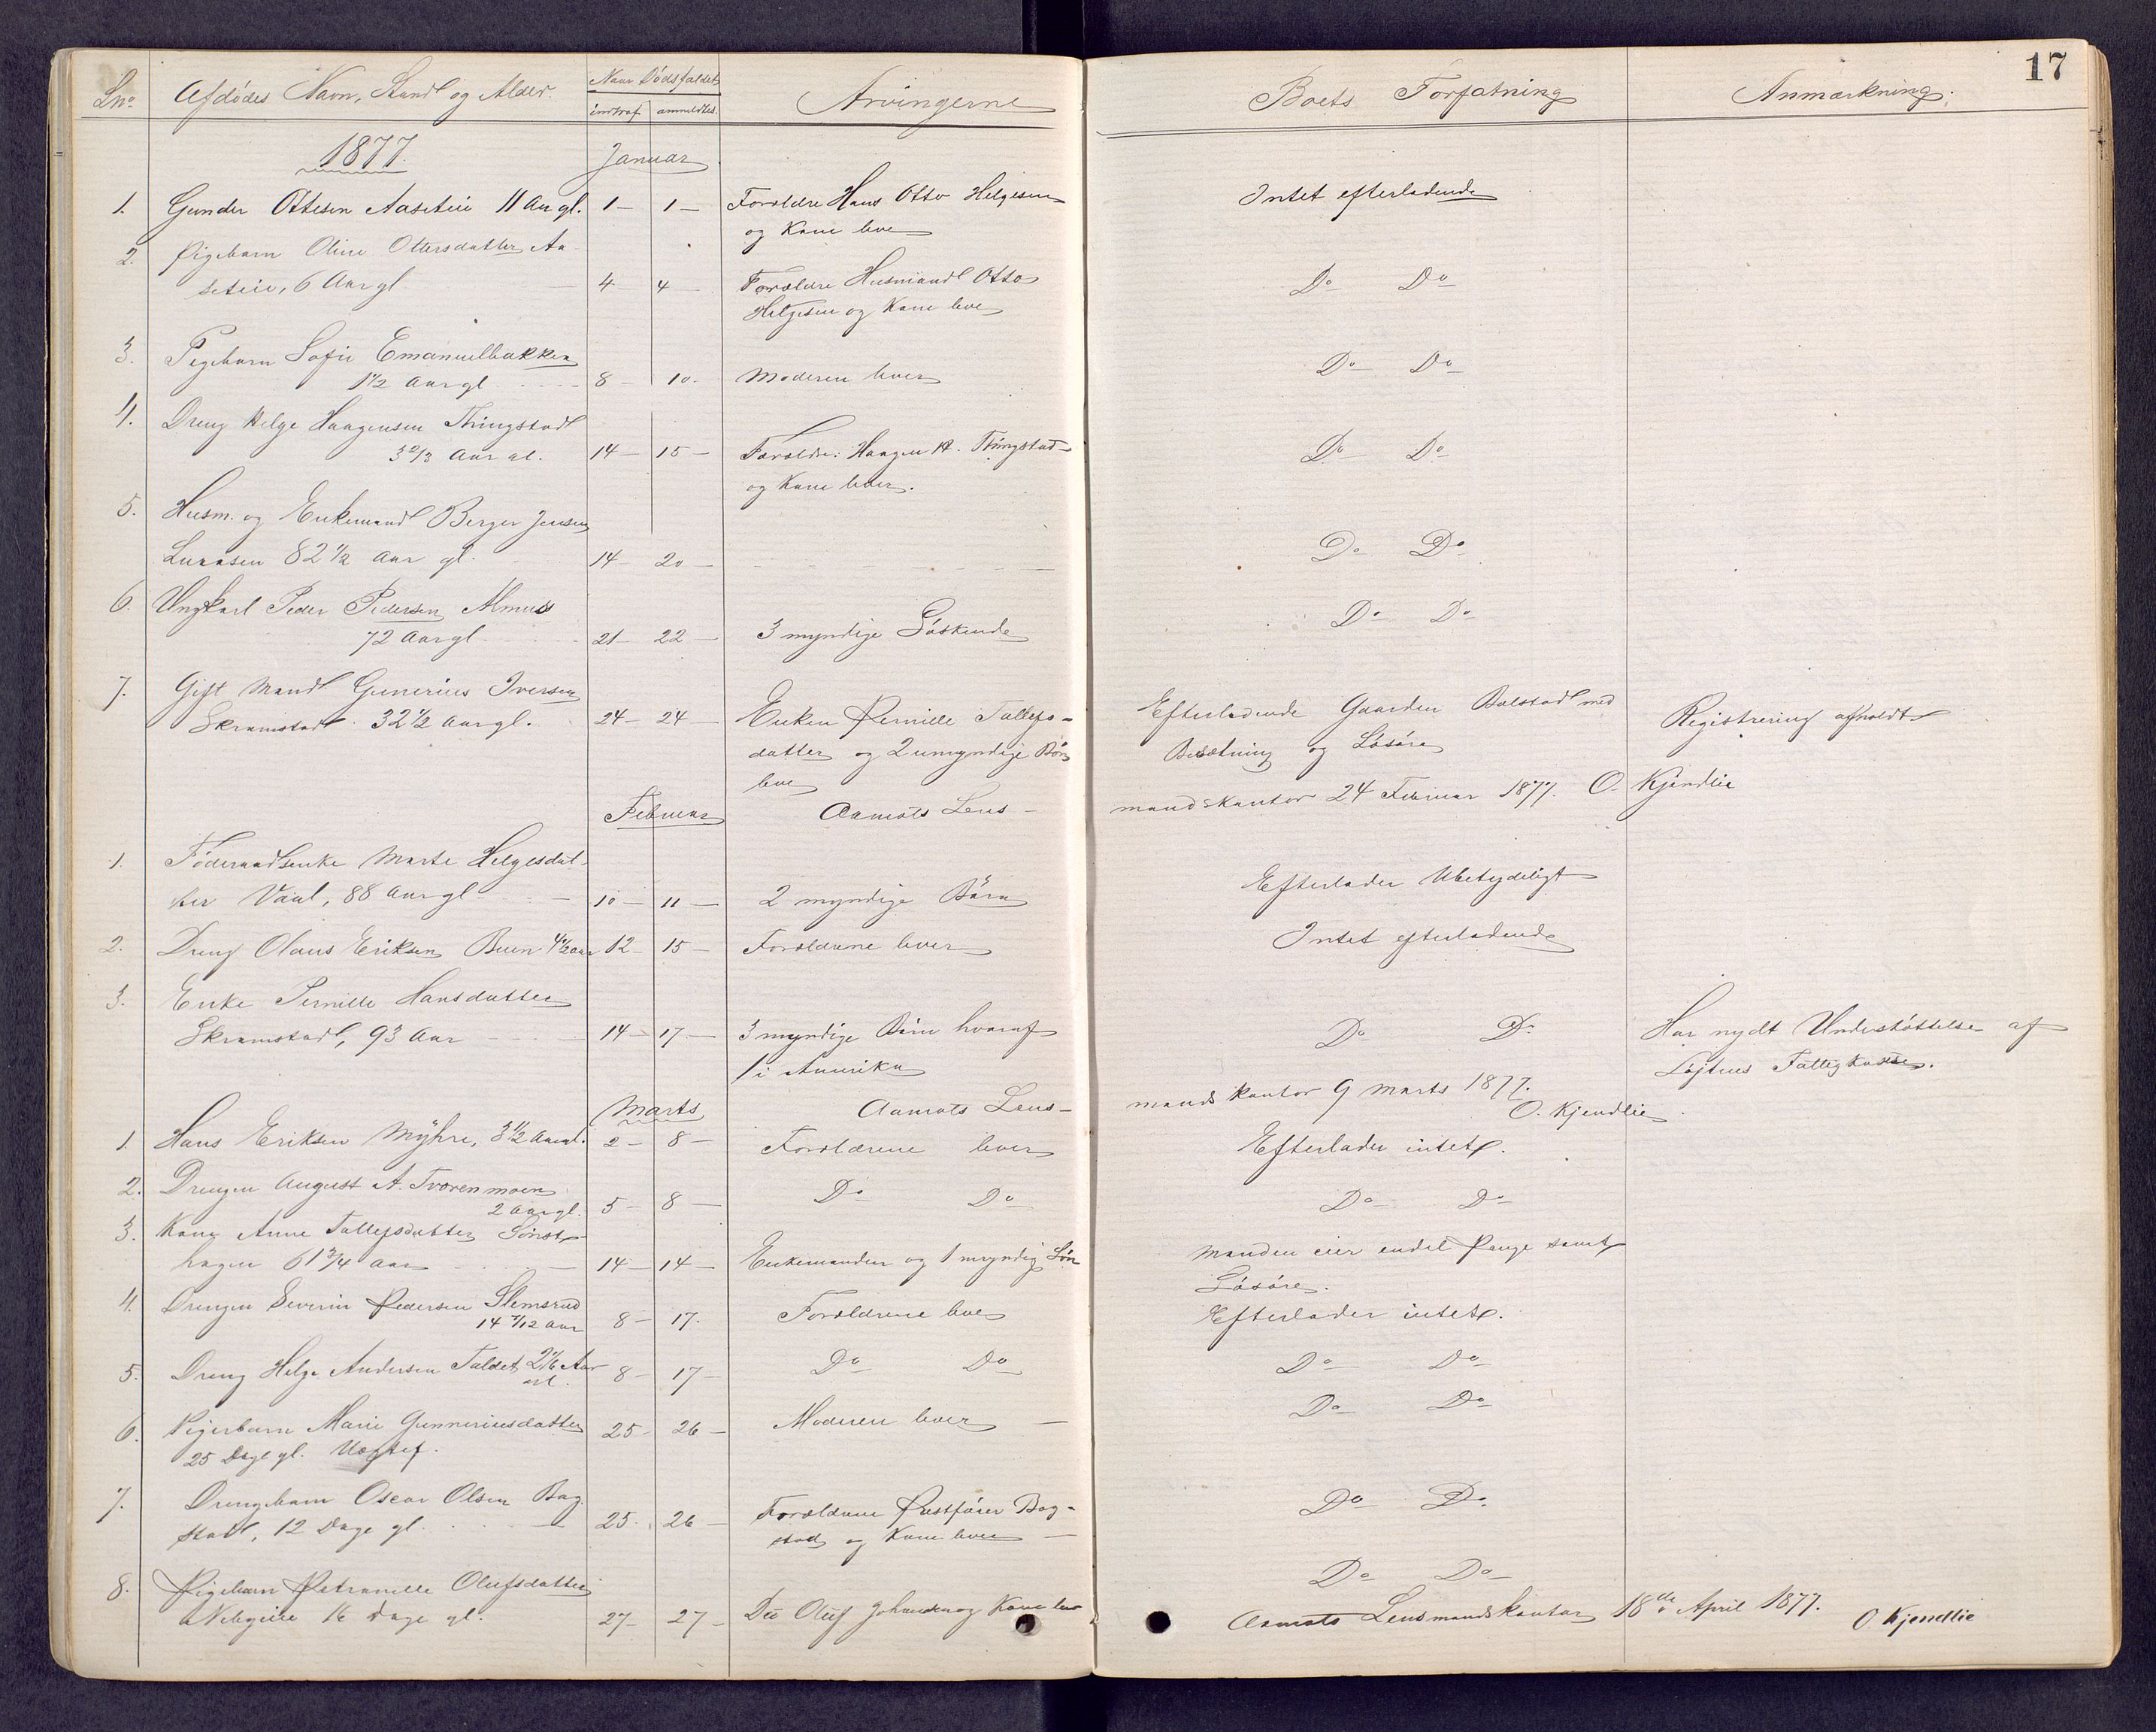 17
Lno Afdødes Navn, Stand og Alder. Naar Dødsfaldet indtraf anmeldtes. Arvingerne Boets Forfatning Anmærkning.
1877. Januar
1. Gunder Ottesen Aaseteie 11 Aar gl. 1 – 1 – Forældre Hans Otto Helgesen Intet efterladende
og Kone leve
2. Pigebarn Oline Ottersdatter Aa-
seteie, 6 Aar gl 4 4 – Forældre Husmand Otto Do Do
Helgesen og Kone leve
3. Pigebarn Sofie Emanuelbakken
1 1/2 Aar gl 8 – 10. Moderen lever Do Do
4. Dreng Helge Haagensen Thingstad
3 2/3 Aar gl. 14 – 15 – Forældre: Haagen H. Thingstad Do Do
og Kone lever.
5. Husm. og Enkemand Berger Jensen
Luraasen 82 1/2 Aar gl. 14 20 – Do Do
6. Ungkarl Peder Pedersen Almuss
72 Aar gl 21 – 22 – 3 myndige Søskende Do Do
7. Gift Mand Gunerius Iversen
Skramstad 32 1/2 Aar gl. 24 – 24 – Enken Pernille Tollefs- Efterladende Gaarden Bolstad med Registrering afholdt
datter og 2 umyndige Børn Besætning og Løsøre
leve
Februar Aamots Lens- mandskontor 24 Februar 1877. O. Kjendlie
1. Føderaadsenke Marte Helgesdat-
ter Vaal, 88 Aar gl 10 – 11 – 2 myndige Børn Efterlader Ubetydeligt
2. Dreng Olaus Eriksen Buen 4 1/2 Aar 12 – 15 – Forældrene lever Intet efterladende
3. Enke Pernille Hansdatter
Skramstad, 93 Aar 14 – 17 – 3 myndige Børn hvoraf Do Do Har nydt Understøttelse af
1 i Amerika Løjtens Fattigkasse.
Marts Aamots Lens- mandskontor 9 Marts 1877.
O. Kjendlie
1 Hans Eriksen Myhre, 3 1/2 Aar gl. 2 – 8 – Forældrene lever Efterlader intet.
2. Drengen August A. Tvorenmoen
2 Aar gl. 5 – 8 – Do Do Do Do
3. Kone Anne Tollefsdatter Sønst-
hagen 61 3/4 Aar 14 – 14 – Enkemanden og 1 myndig Søn Manden eier endel Penge samt
Løsøre.
4. Drengen Severin Pedersen Slemsrud
14 7/12 Aar 8 – 17. Forældrene leve Efterlader intet.
5. Dreng Helge Andersen Taldet 2 1/6 Aar
gl. 8 – 17 – Do Do Do Do
6. Pigebarn Marie Gunneriusdatter 25 – 26 – Moderen lever Do Do
25 Dage gl.
7. Drengebarn Oscar Olsen Bag-
stad, 12 Dage gl. 25. 26 – Forældrene Postfører Bag- Do Do
stad og Kone leve
8. Pigebarn Petronelle Olufsdatter Do Do
16 Dage gl. 27 – 27 – Do Oluf Johnsen og Kone leve Aamots Lensmandskontor 18de April 1877. O Kjendlie